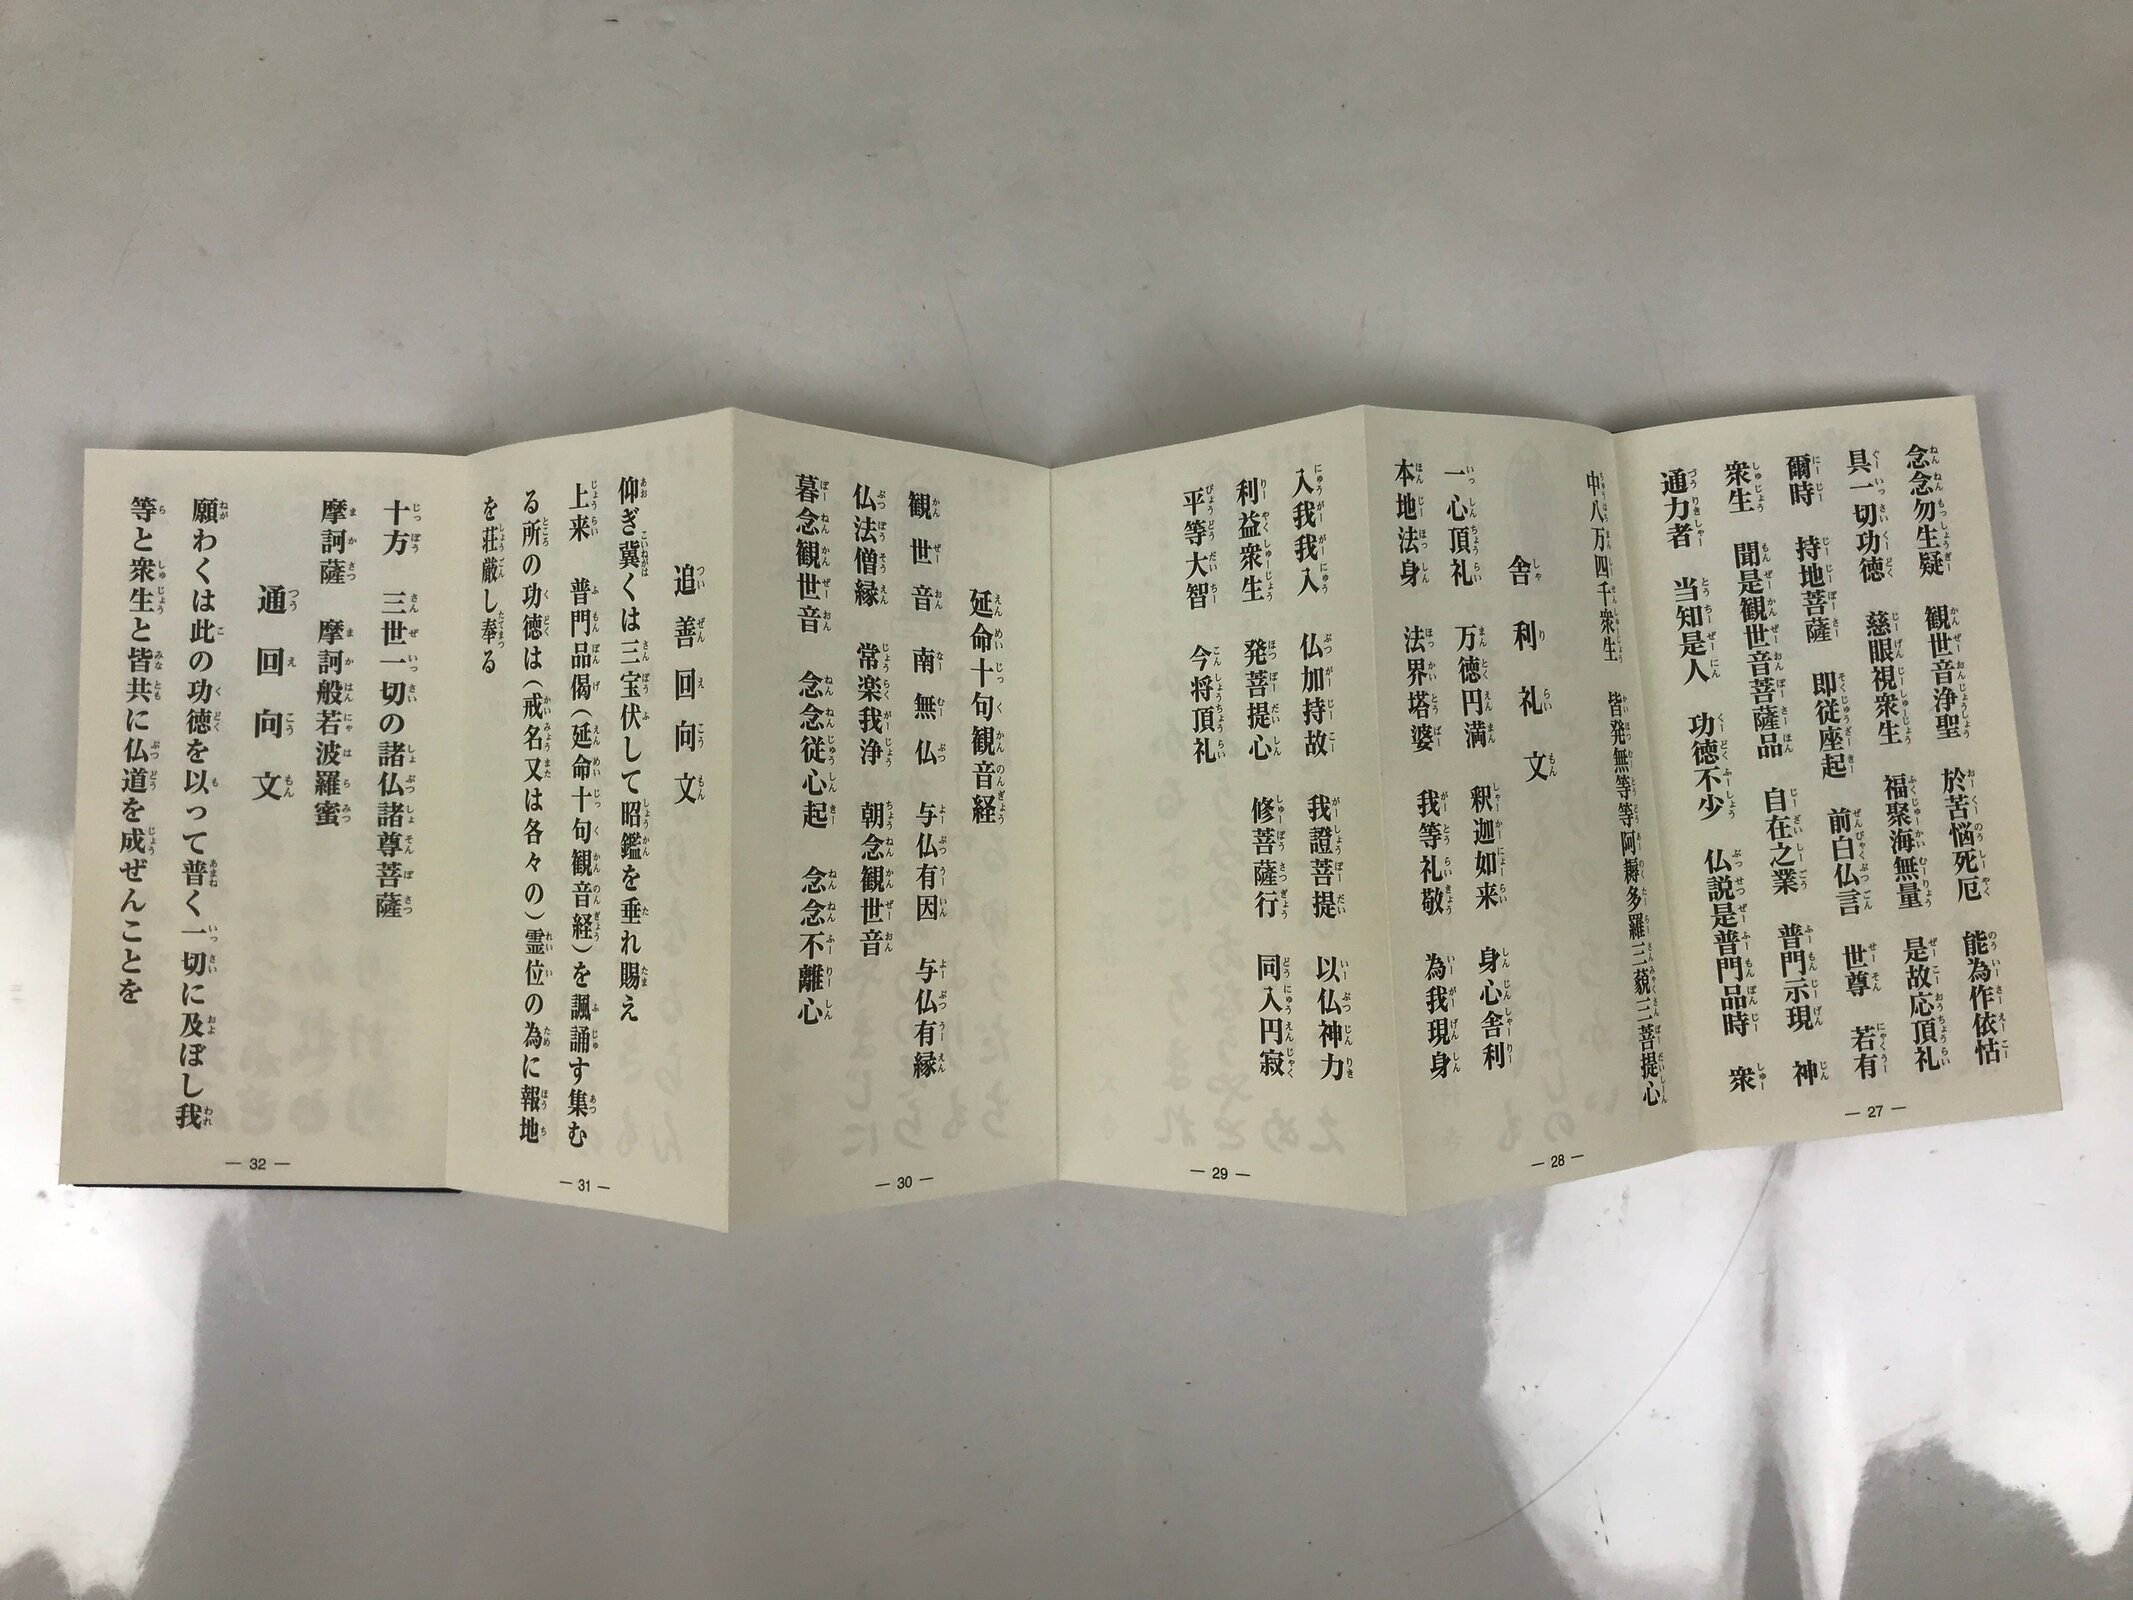 念念勿生疑　観世音浄聖　於苦悩死厄　能為作依怙
具一切功徳　慈眼視衆生　福聚海無量　是故応頂礼
爾時　持地菩薩　即従座起　前白仏言　世尊　若有
衆生　聞是観世音菩薩品　自在之業　普門示現　神
通力者　当知是人　功徳不少　仏説是普門品時　衆
— 27 —
中八万四千衆生　皆発無等等阿耨多羅三藐三菩提心
舎利礼文
一心頂礼　万徳円満　釈迦如来　身心舎利
本地法身　法界塔婆　我等礼敬　為我現身
— 28 —
入我我入　仏加持故　我證菩提　以仏神力
利益衆生　発菩提心　修菩薩行　同入円寂
平等大智　今将頂礼
— 29 —
延命十句観音経
観世音　南無仏　与仏有因　与仏有縁
仏法僧縁　常楽我浄　朝念観世音
暮念観世音　念念従心起　念念不離心
— 30 —
追善回向文
仰ぎ冀くは三宝伏して昭鑑を垂れ賜え
上来　普門品偈（延命十句観音経）を諷誦す集む
る所の功徳は（戒名又は各々の）霊位の為に報地
を荘厳し奉る
— 31 —
十方　三世一切の諸仏諸尊菩薩
摩訶薩　摩訶般若波羅蜜
通回向文
願わくは此の功徳を以って普く一切に及ぼし我
等と衆生と皆共に仏道を成ぜんことを
— 32 —